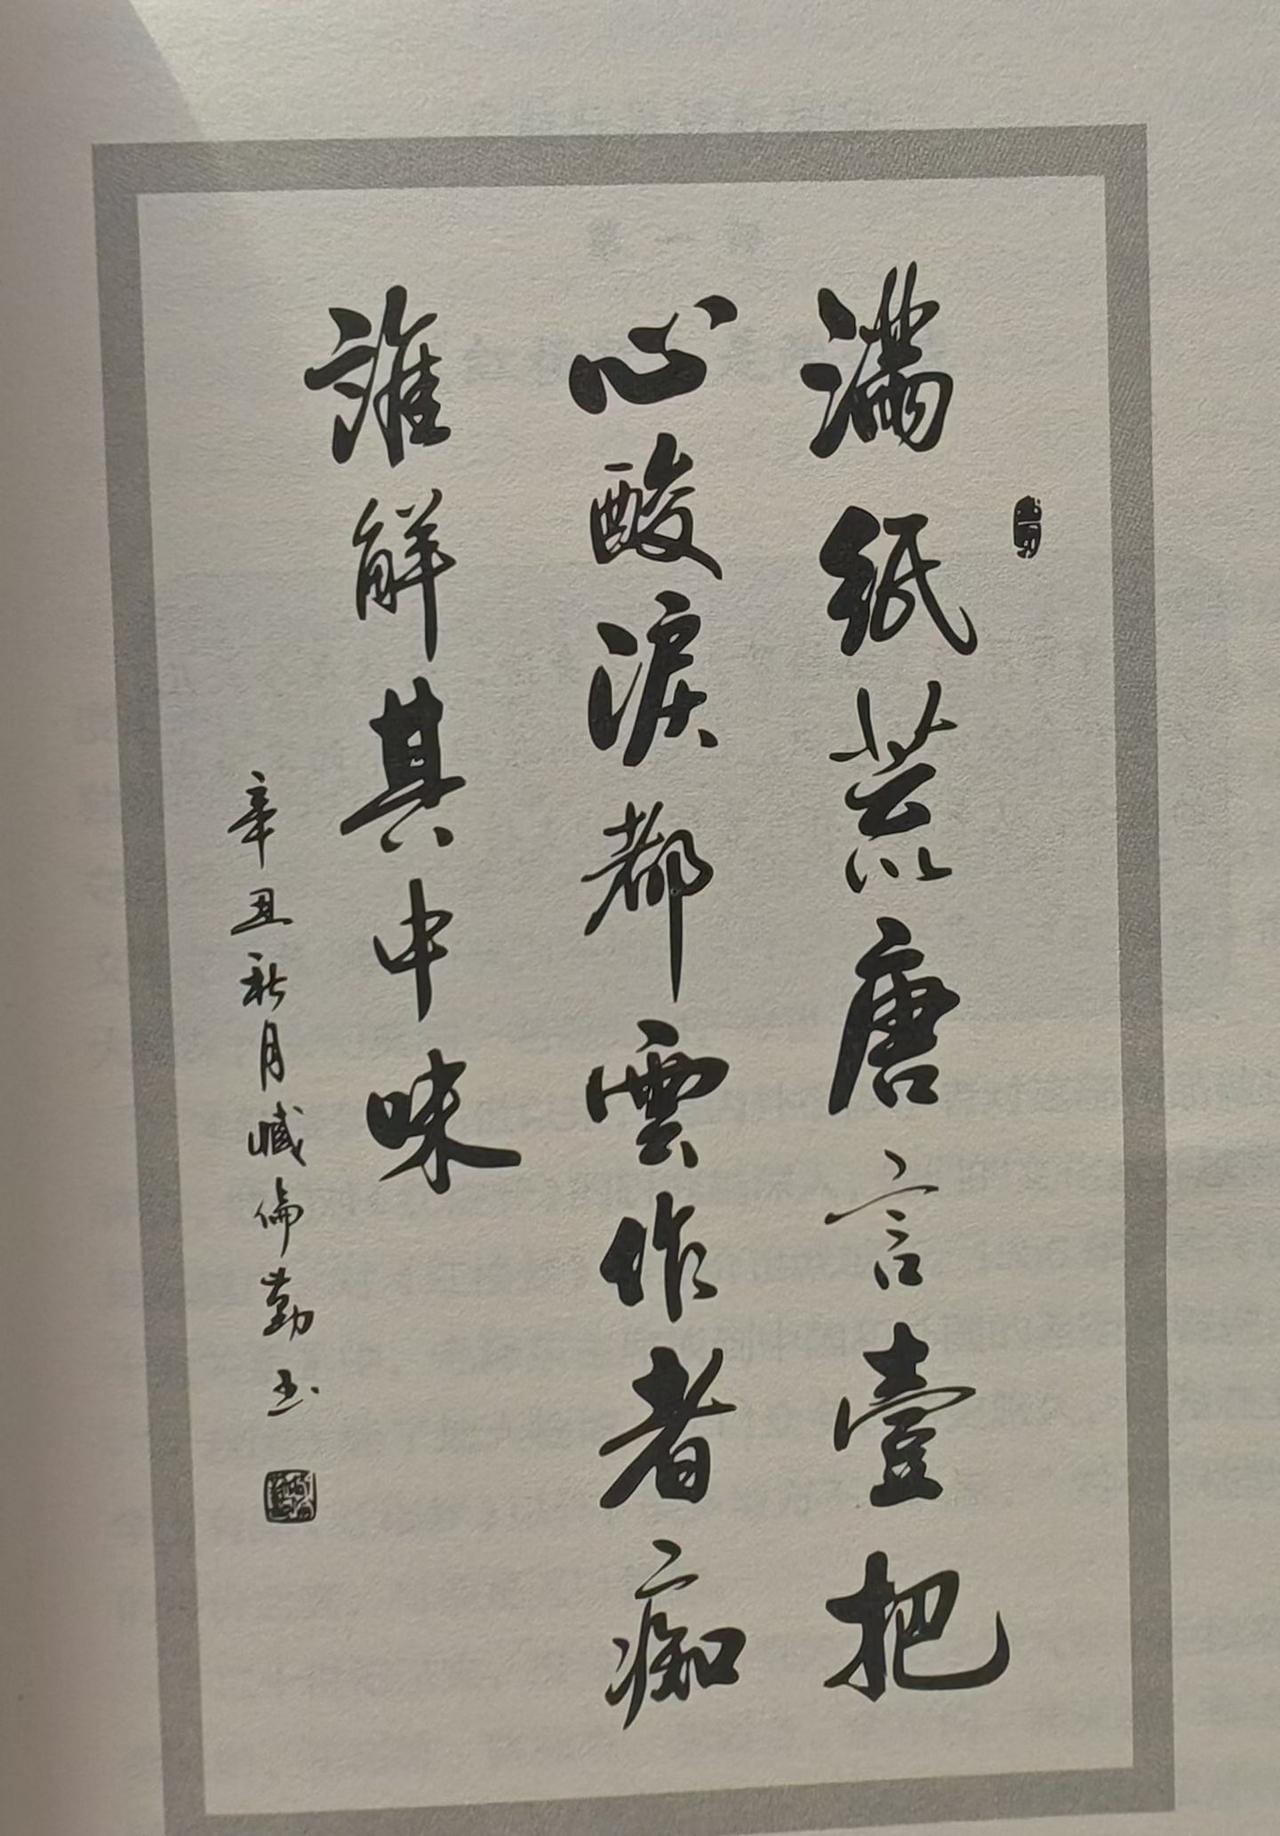 滿紙荒唐言壹把
心酸淚都雲作者痴
誰解其中味
辛丑秋月臧倫勤书